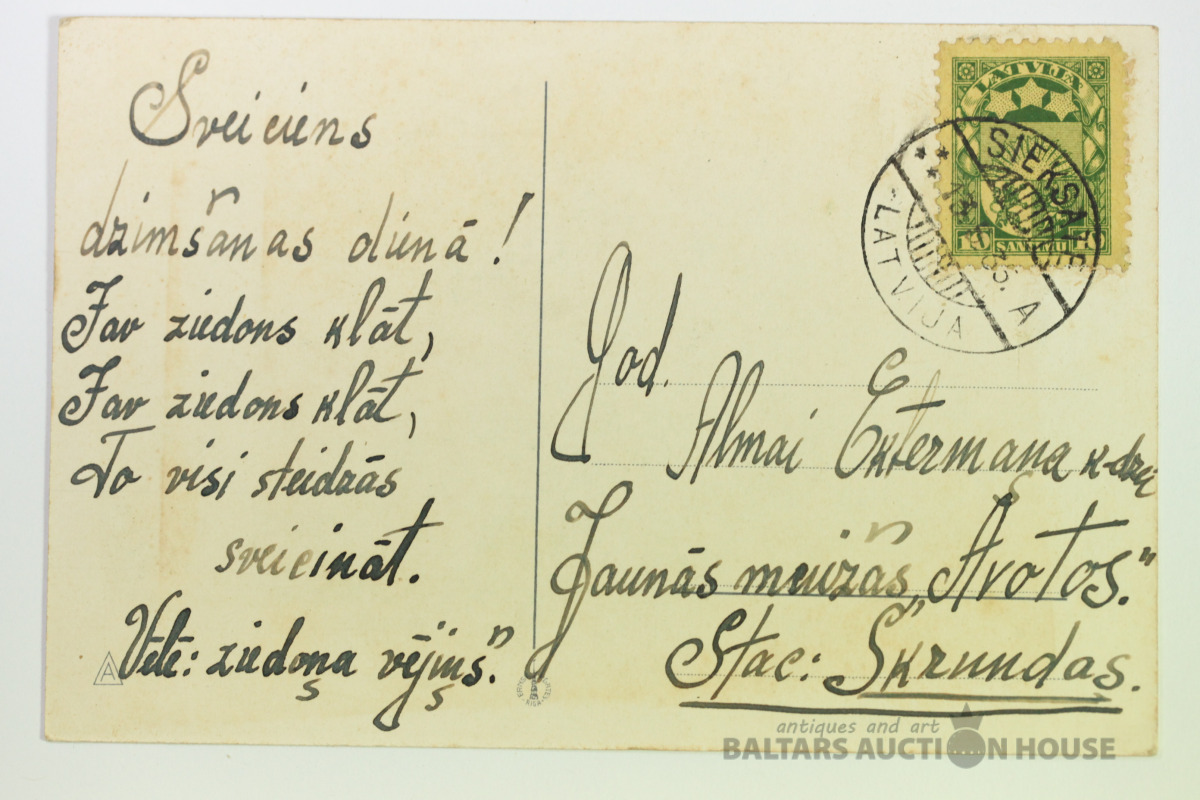 Sveiciens
dzimšanas dienā!
Jav ziedons klāt,
Jav ziedons klāt,
To visi steidzās
sveicināt.
Vēlē: ziedoņa vējiņš."
LATVIJA
LATVIJA
A
God.
Almai Ektermana k-dzei
Jaunās muižas „Avotos."
Stac: Skrundas.
antiques and art
BALTARS AUCTION HOUSE